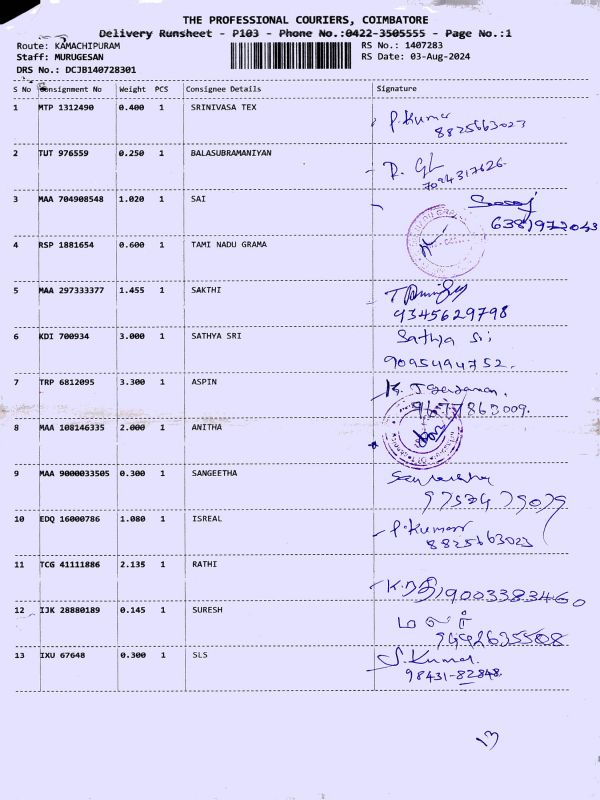 THE PROFESSIONAL COURIERS, COIMBATORE
Delivery Runsheet - P103 - Phone No.:0422-3505555 - Page No.:1
Route: KAMACHIPURAM RS No.: 1407283
Staff: MURUGESAN RS Date: 03-Aug-2024
DRS No.: DCJB140728301
S No Consignment No Weight PCS Consignee Details Signature
1 MTP 1312490 0.400 1 SRINIVASA TEX P.Kumar
8825663023
2 TUT 976559 0.250 1 BALASUBRAMANIYAN
7094317626
3 MAA 704908548 1.020 1 SAI
6381972043
4 RSP 1881654 0.600 1 TAMI NADU GRAMA
5 MAA 297333377 1.455 1 SAKTHI
9345629798
6 KDI 700934 3.000 1 SATHYA SRI Sathya Sri
9095494752.
7 TRP 6812095 3.300 1 ASPIN
9677863009.
8 MAA 108146335 2.000 1 ANITHA
9 MAA 9000033505 0.300 1 SANGEETHA
10 EDQ 16000786 1.080 1 ISREAL P.Kumar
8825663023
11 TCG 41111886 2.135 1 RATHI
9003383460
12 IJK 28880189 0.145 1 SURESH
9442635508
13 IXU 67648 0.300 1 SLS S.Kumar.
98431-82848
13